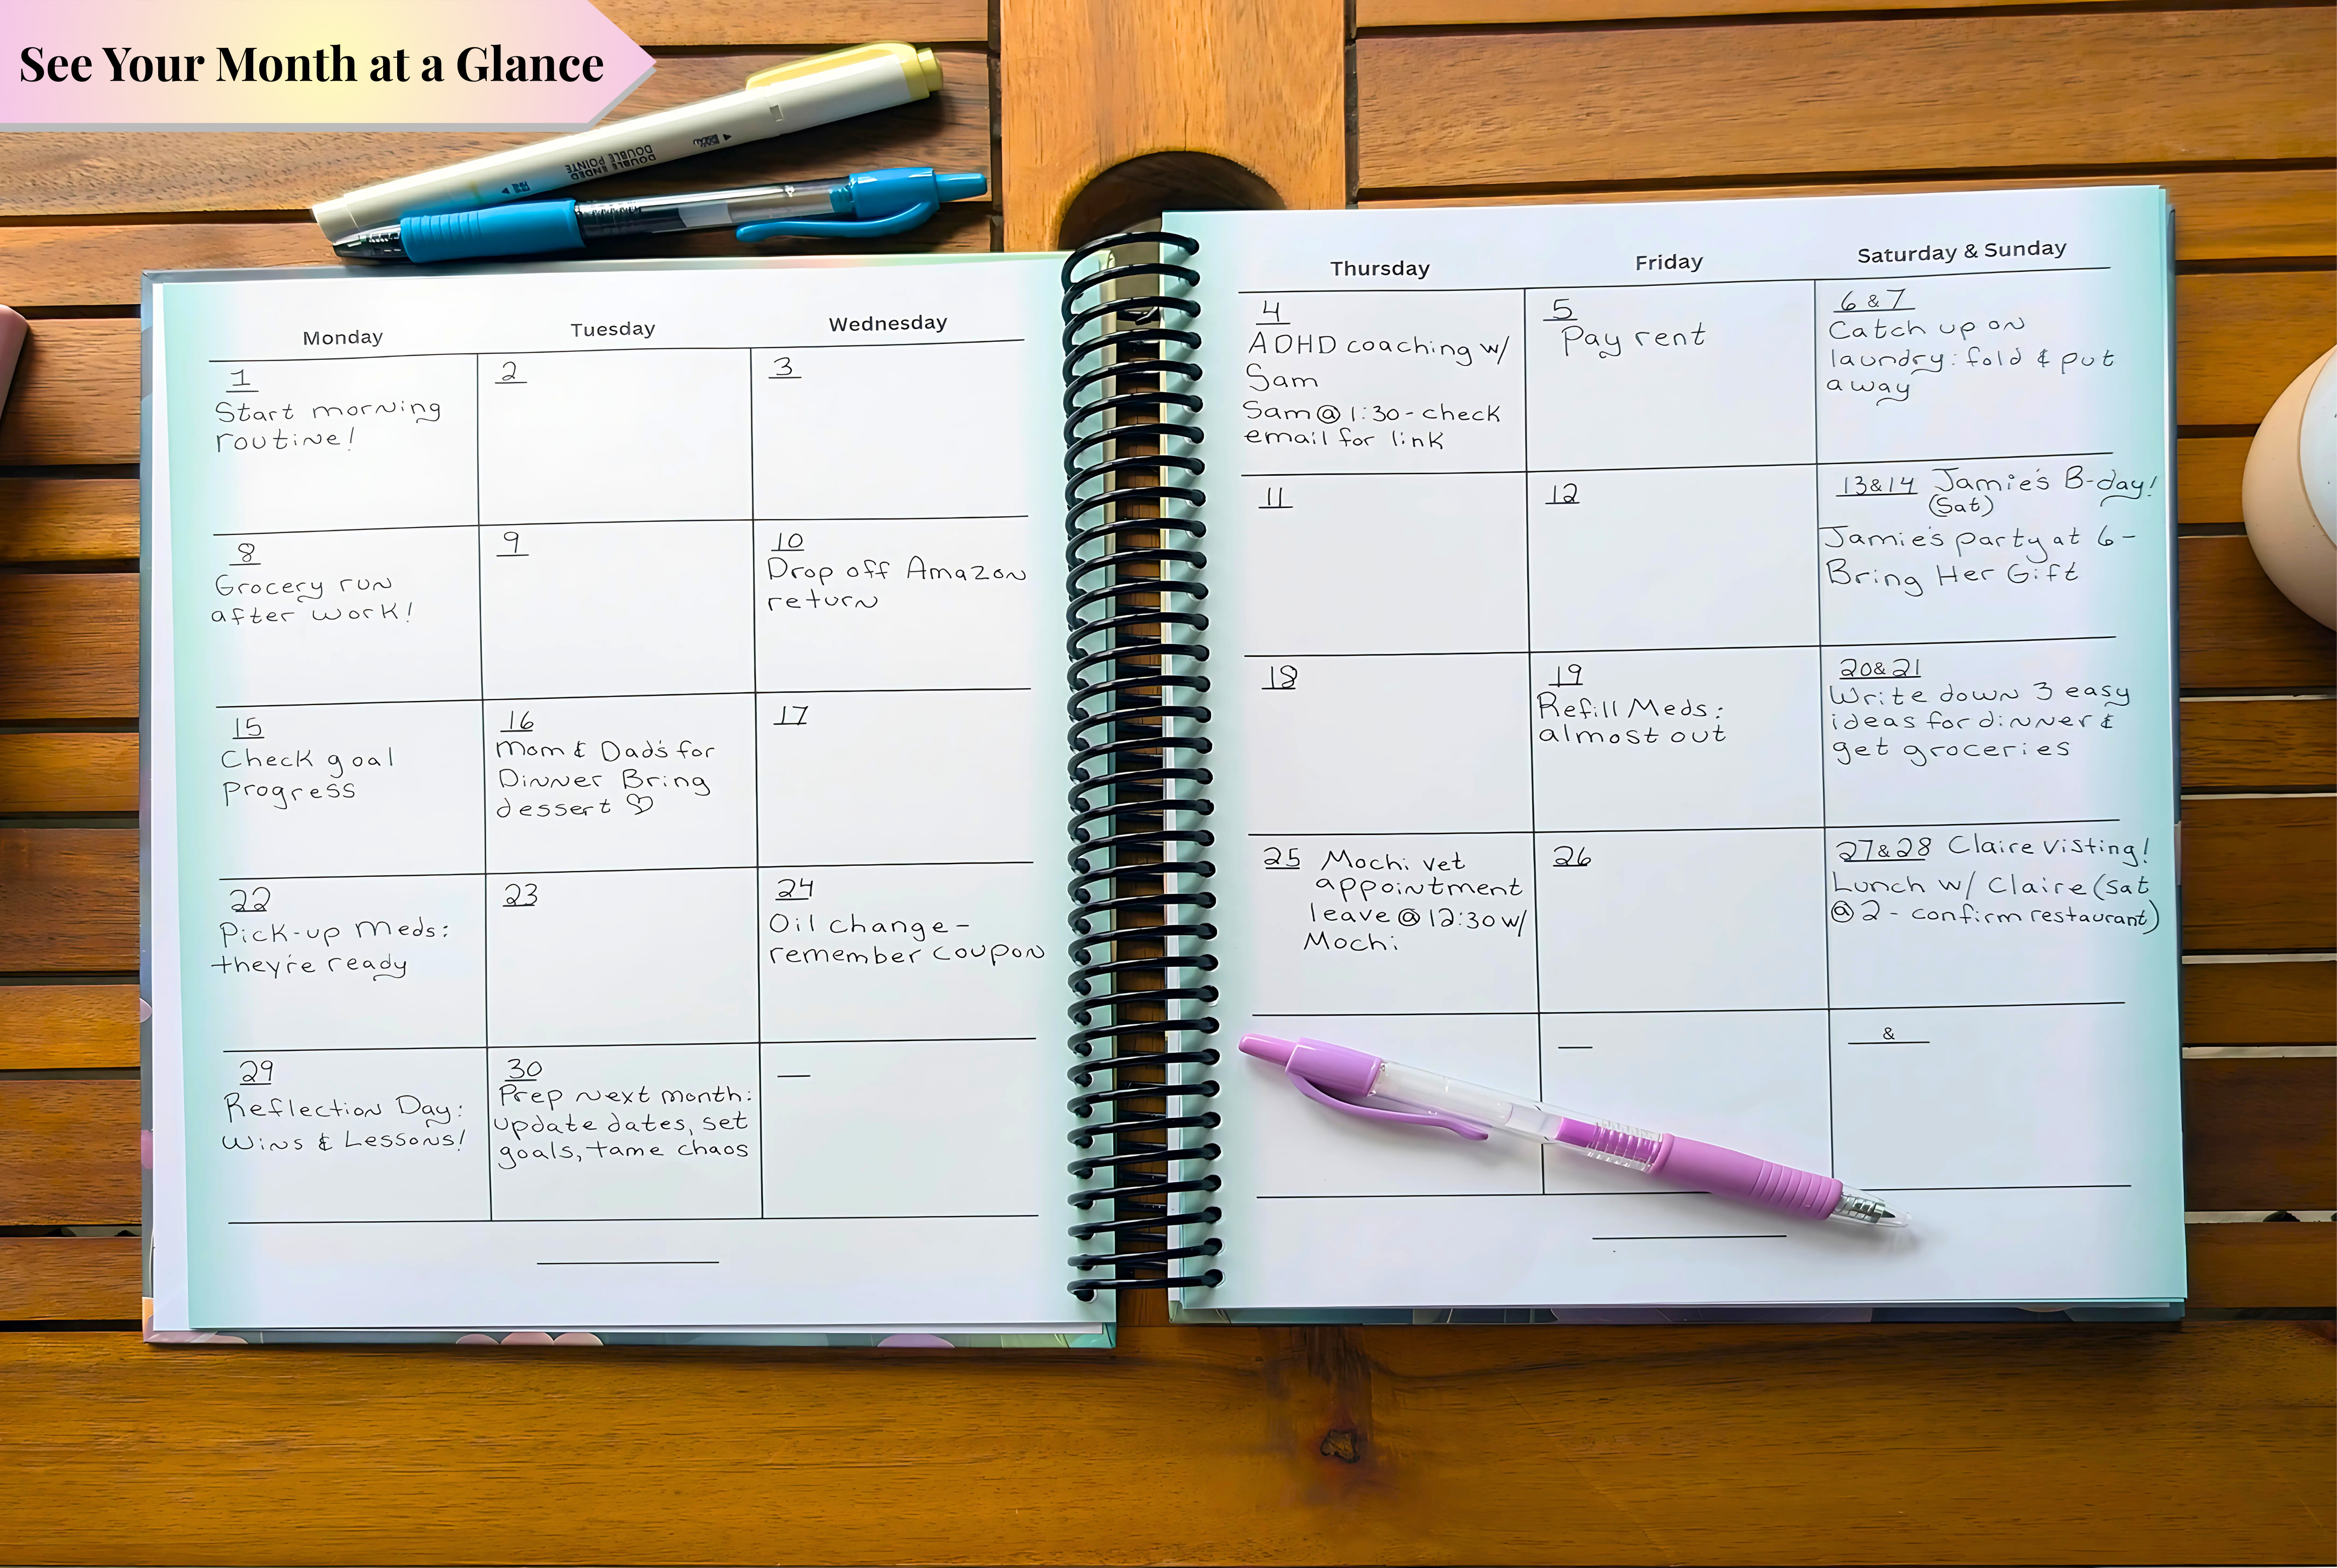 See Your Month at a Glance
DOUBLE ENDED
DOUBLE POINTE
Monday
Tuesday
Wednesday
1
Start morning
routine!
2
3
8
Grocery run
after work!
9
10
Drop off Amazon
return
15
Check goal
Progress
16
Mom & Dad's for
Dinner Bring
dessert ♡
17
22
Pick-up Meds:
they're ready
23
24
Oil change-
remember coupon
29
Reflection Day:
Wins & Lessons!
30
Prep next month:
update dates, set
goals, tame chaos
Thursday
Friday
Saturday & Sunday
4
ADHD coaching w/
Sam
Sam @ 1:30 - check
email for link
5
Pay rent
6 & 7
Catch up on
laundry: fold & put
away
11
12
13&14 Jamie's B-day!
(Sat)
Jamie's party at 6-
Bring Her Gift
18
19
Refill Meds:
almost out
20&21
Write down 3 easy
ideas for dinner &
get groceries
25 Mochi vet
appointment
leave @ 12:30 w/
Mochi
26
27&28 Claire Visting!
Lunch w/ Claire (Sat
@ 2 - confirm restaurant)
&